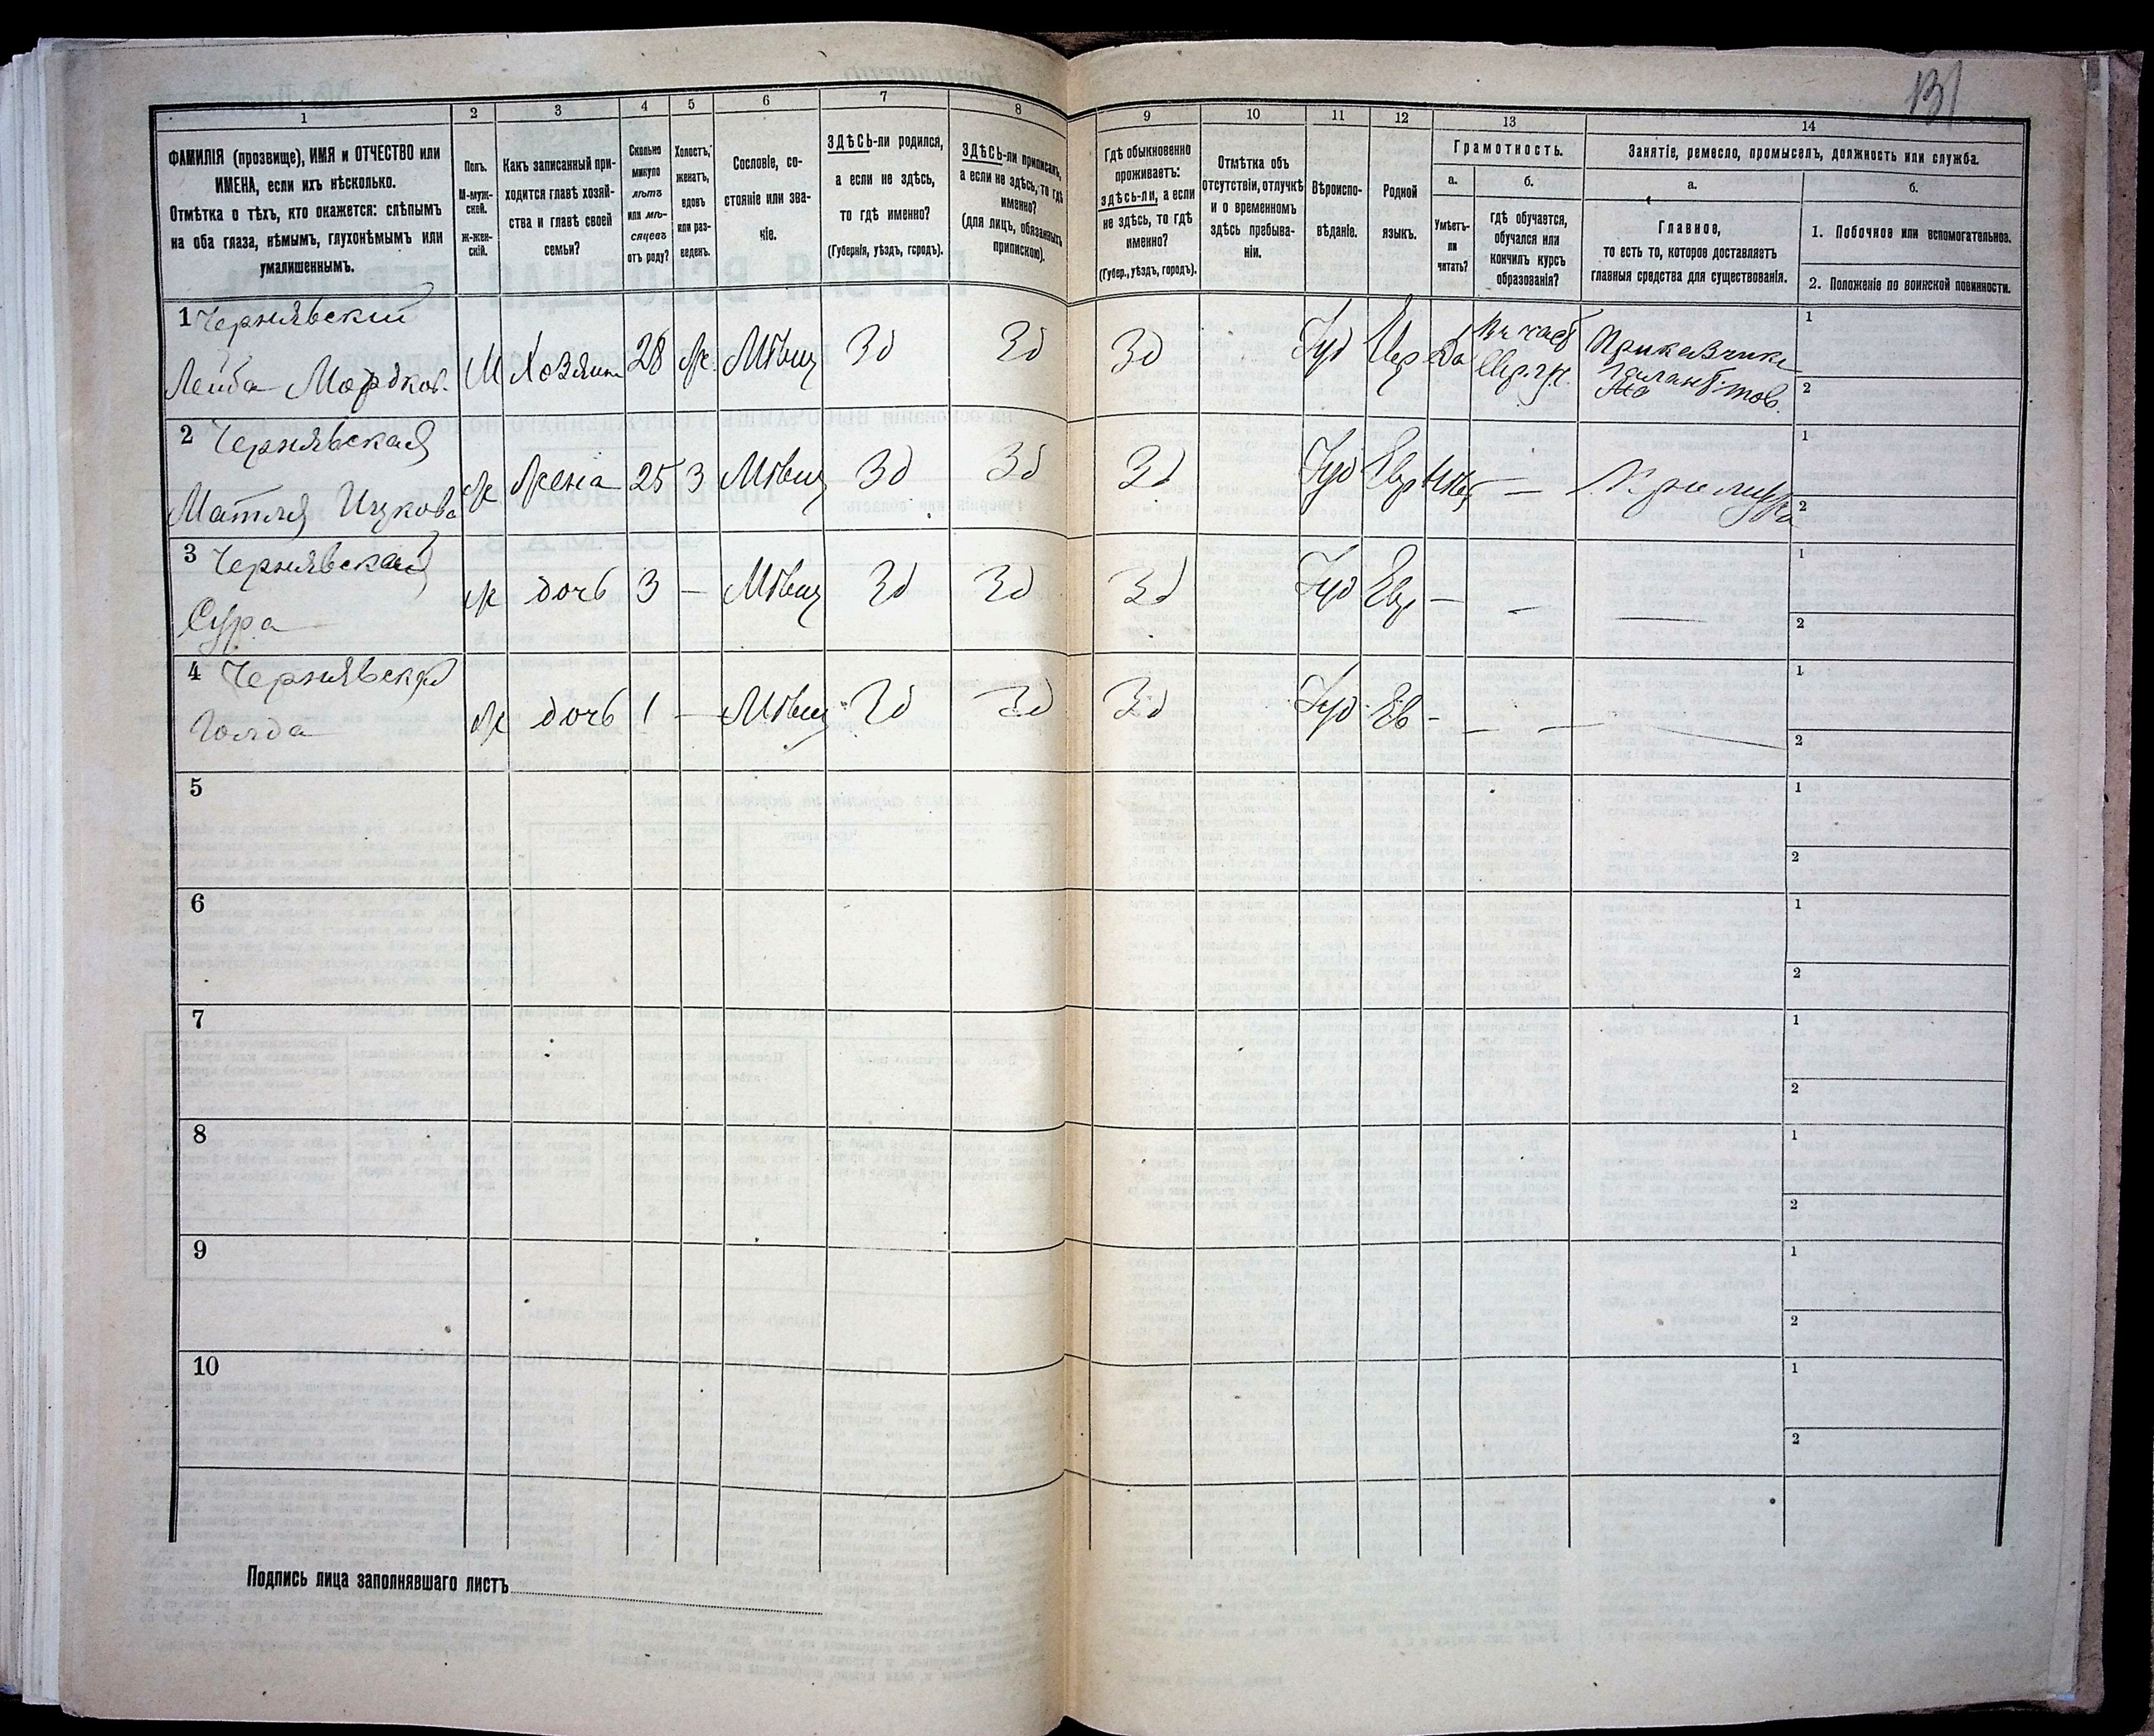 131
1
2
3
4
5
6
7
8
9
10
11
12
13
14
ФАМИЛІЯ (прозвище), ИМЯ и ОТЧЕСТВО или
ИМЕНА, если ихъ нѣсколько.
Отмѣтка о тѣхъ, кто окажется: слѣпымъ
на оба глаза, нѣмымъ, глухонѣмымъ или
умалишеннымъ.
Полъ.
М-муж-
ской.
Ж-жен-
скій.
Какъ записанный при-
ходится главѣ хозяй-
ства и главѣ своей
семьи?
Сколько
минуло
лѣтъ
или мѣ-
сяцевъ
отъ роду?
Холостъ,
женатъ,
вдовъ
или раз-
веденъ.
Сословіе, со-
стояніе или зва-
ніе.
ЗДѢСЬ-ли родился,
а если не здѣсь,
то гдѣ именно?
(Губернія, уѣздъ, городъ).
ЗДѢСЬ-ли приписанъ,
а если не здѣсь, то гдѣ
именно?
(для лицъ, обязанныхъ
припискою).
Гдѣ обыкновенно
проживаетъ:
здѣсь-ли, а если
не здѣсь, то гдѣ
именно?
(Губер., уѣздъ, городъ).
Отмѣтка объ
отсутствіи, отлучкѣ
и о временномъ
здѣсь пребыва-
ніи.
Вѣроиспо-
вѣданіе.
Родной
языкъ.
Грамотность.
а.
б.
Умѣетъ-
ли
читать?
гдѣ обучается,
обучался или
кончилъ курсъ
образованія?
Занятіе, ремесло, промыселъ, должность или служба.
а.
б.
Главное,
то есть то, которое доставляетъ
главныя средства для существованія.
1. Побочное или вспомогательное.
2. Положеніе по воинской повинности.
1 Чернявскій
Лейба Мордков. М Хозяин 28 ж. Мѣщ Зд Зд Зд Іуд Евр Да
В част
Приказчик
галант. тов.
1
2
2 Чернявская
Матля Ицкова ж Жена 25 З Мѣщ Зд Зд Зд Іуд Евр Нѣт —
1
2
3 Чернявская
Сура ж дочь 3 — Мѣщ Зд Зд Зд Іуд Евр — — —
1
2
4 Чернявская
Голда ж дочь 1 — Мѣщ Зд Зд Зд Іуд Ев - — —
1
2
5
1
2
6
1
2
7
1
2
8
1
2
9
1
2
10
1
2
Подпись лица заполнявшаго листъ